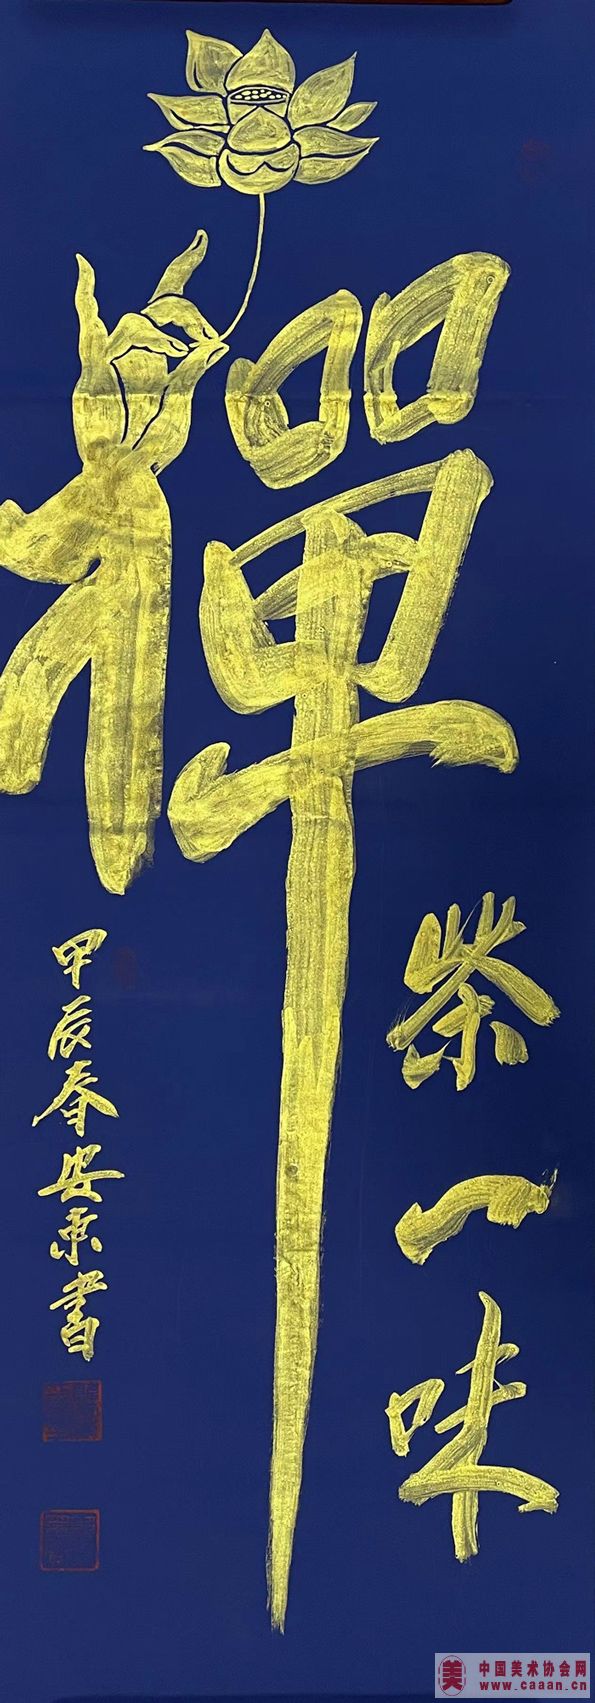 禪
茶一味
甲辰春安東書
美
中国美术协会网
www.caaan.cn